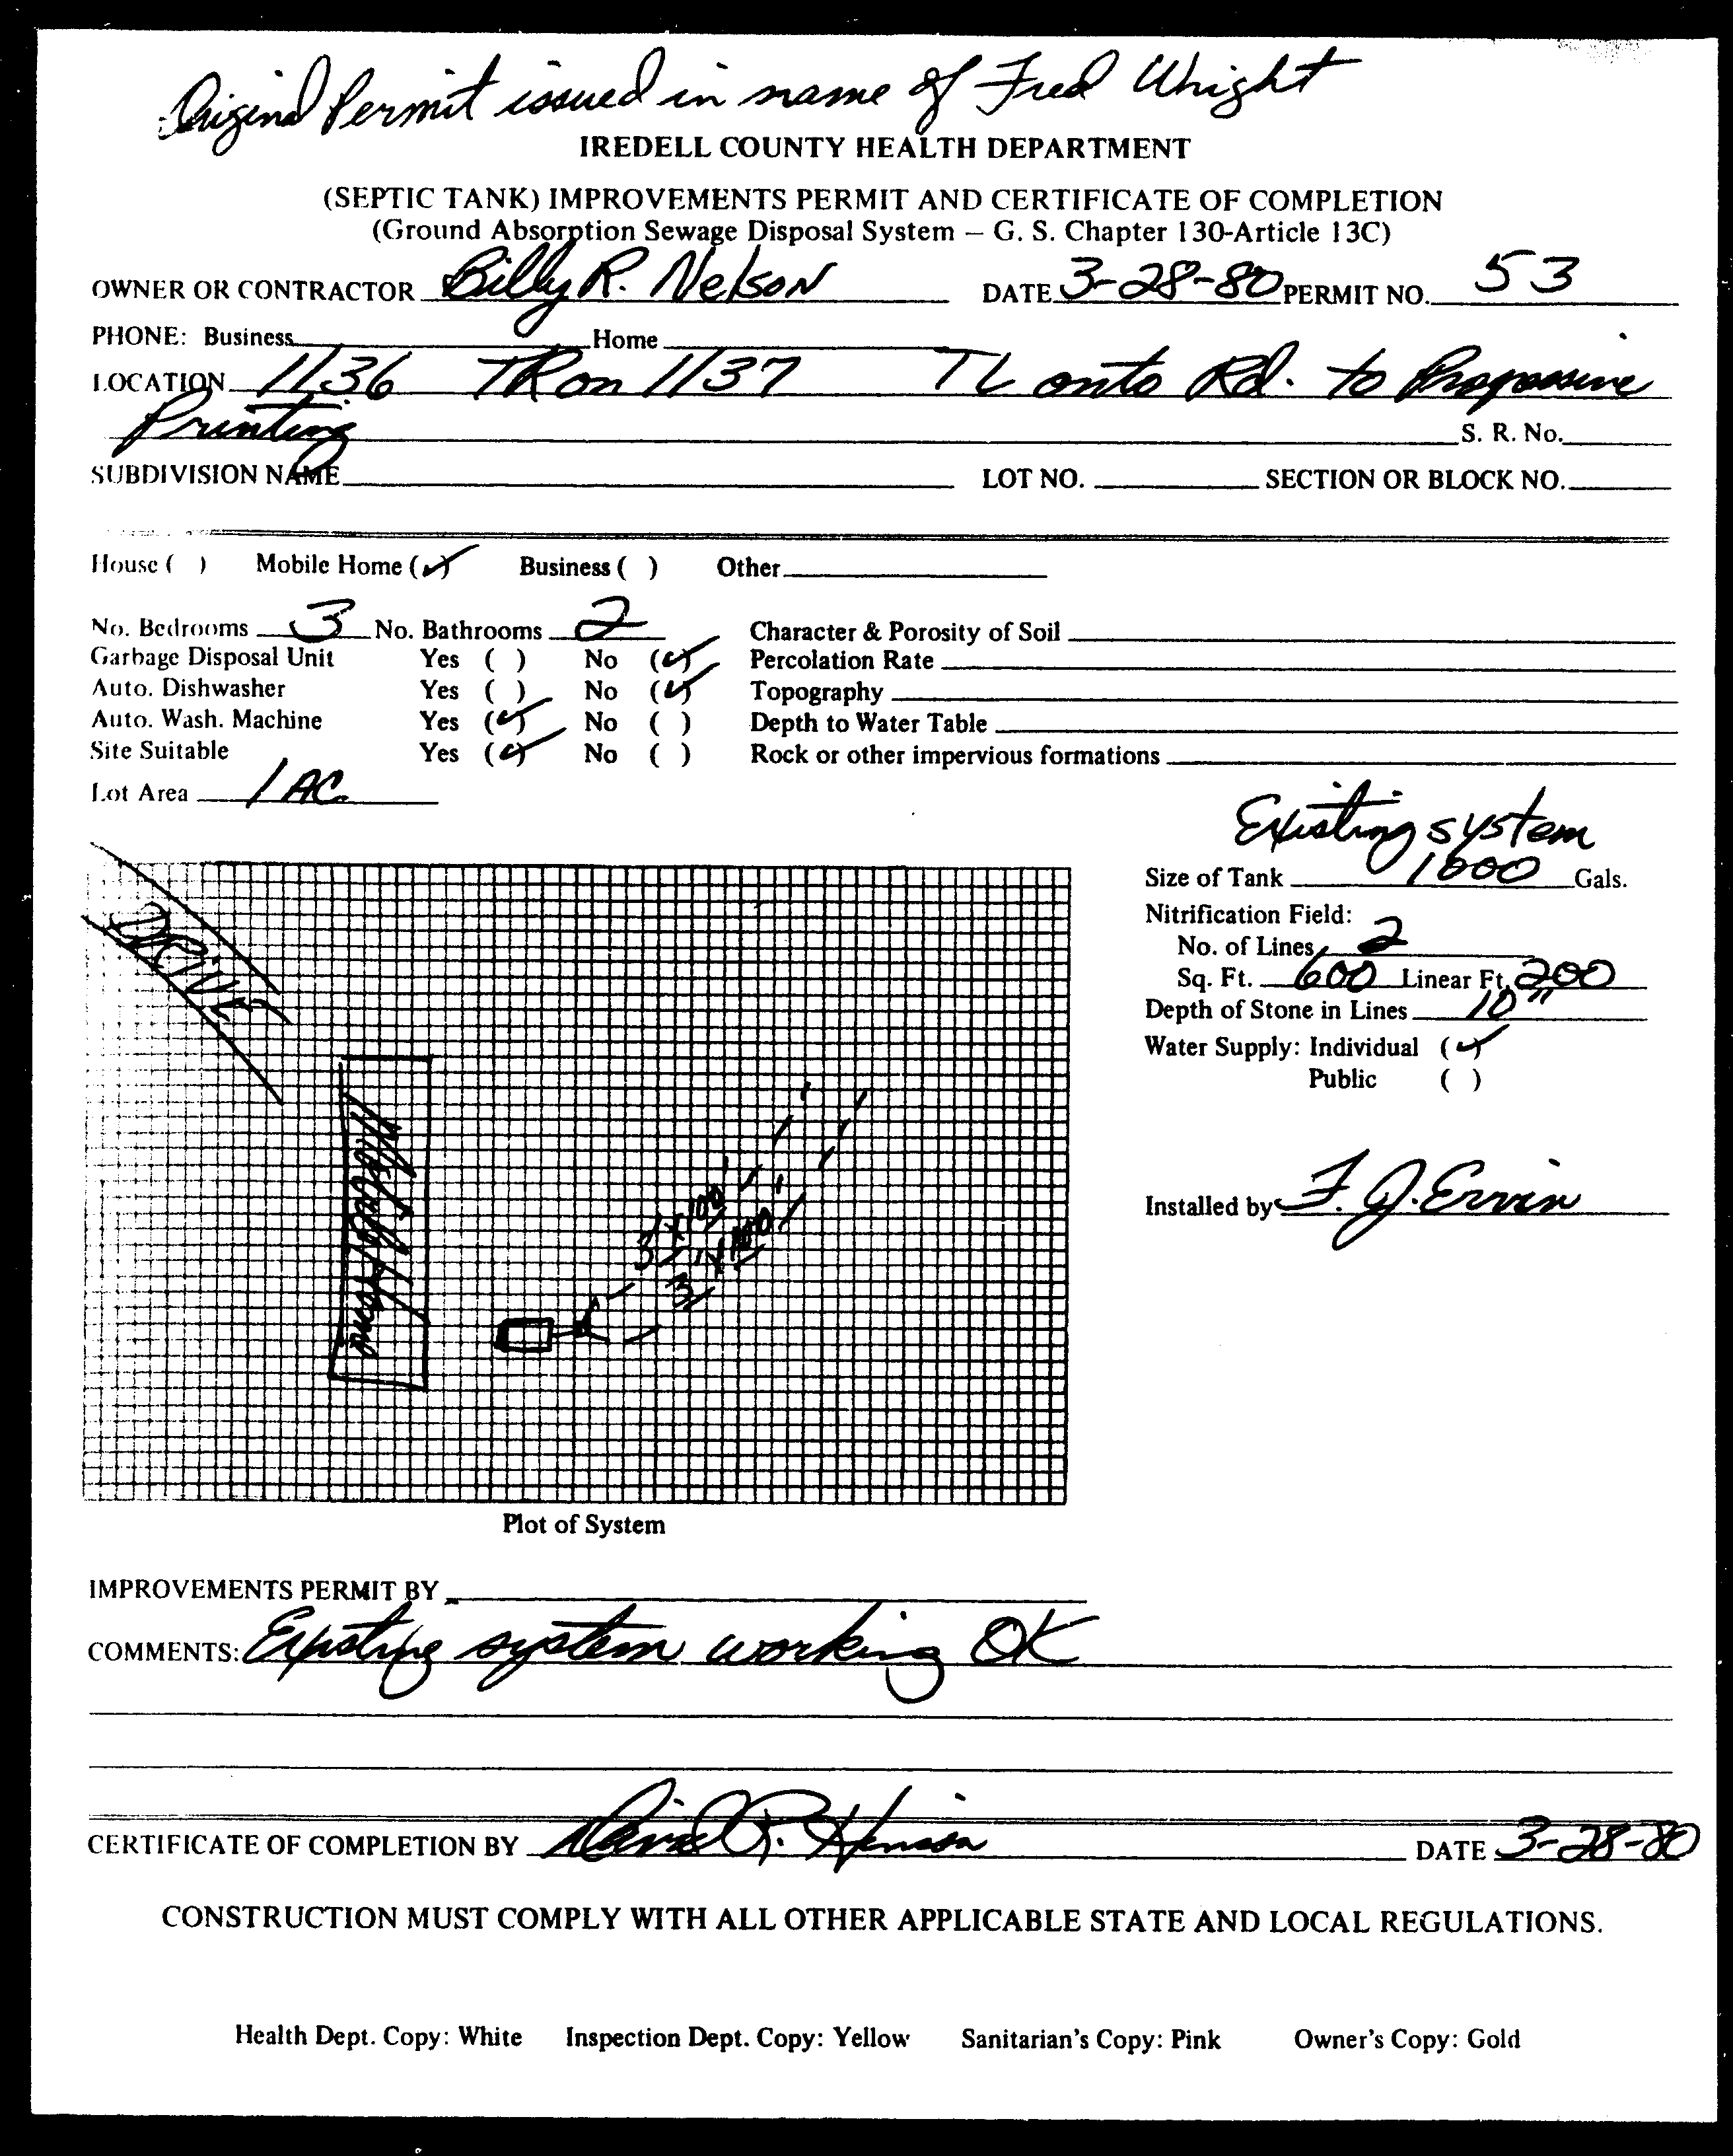 Original Permit issued in name of Fred Wright
IREDELL COUNTY HEALTH DEPARTMENT
(SEPTIC TANK) IMPROVEMENTS PERMIT AND CERTIFICATE OF COMPLETION
(Ground Absorption Sewage Disposal System – G. S. Chapter 130-Article 13C)
OWNER OR CONTRACTOR Billy R. Nelson DATE 3-28-80 PERMIT NO. 53
PHONE: Business Home
LOCATION 1136 TR on 1137 TL onto Rd. to Progressive
Printing S. R. No.
SUBDIVISION NAME LOT NO. SECTION OR BLOCK NO.
House ( ) Mobile Home (✓) Business ( ) Other
No. Bedrooms 3 No. Bathrooms 2 Character & Porosity of Soil
Garbage Disposal Unit Yes ( ) No (✓) Percolation Rate
Auto. Dishwasher Yes ( ) No (✓) Topography
Auto. Wash. Machine Yes (✓) No ( ) Depth to Water Table
Site Suitable Yes (✓) No ( ) Rock or other impervious formations
Lot Area 1 AC.
Existing system
Size of Tank 1000 Gals.
Nitrification Field:
No. of Lines 2
Sq. Ft. 600 Linear Ft. 200
Depth of Stone in Lines 10"
Water Supply: Individual (✓)
Public ( )
Installed by F. J. Ervin
DRIVE
Mobile Home
3' x 100'
3' x 100'
Plot of System
IMPROVEMENTS PERMIT BY
COMMENTS: Existing system working OK
CERTIFICATE OF COMPLETION BY David R. DATE 3-28-80
CONSTRUCTION MUST COMPLY WITH ALL OTHER APPLICABLE STATE AND LOCAL REGULATIONS.
Health Dept. Copy: White Inspection Dept. Copy: Yellow Sanitarian's Copy: Pink Owner's Copy: Gold